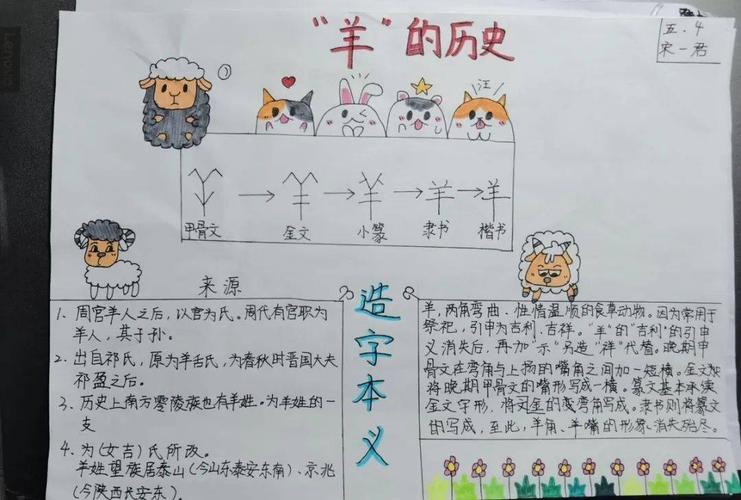 Lenovo
"羊"的历史
五.4
宋一君
汪
甲骨文 → 金文 → 小篆 → 隶书 → 楷书
来源
1. 周官羊人之后，以官为氏。周代有官职为
羊人，其于孙。
2. 出自祁氏，原为羊舌氏，为春秋时晋国大夫
祁盈之后。
3. 历史上南方零陵族也有羊姓。为羊姓的一
支
4. 为(女吉)氏所改。
羊姓望族居泰山(今山东泰安东南)、京兆
(今陕西长安东)。
造字本义
羊，两角弯曲、性情温顺的食草动物。因为常用于
祭祀，引申为吉利、吉祥。"羊"的"吉利"的引申
义消失后，再加"示"另造"祥"代替。晚期甲
骨文在弯角与上扬的嘴角之间加一短横。金文
将晚期甲骨文的嘴形写成一横。篆文基本承续
金文字形，将的变弯角写成。隶书则将篆文
的写成，至此，羊角、羊嘴的形象消失殆尽。